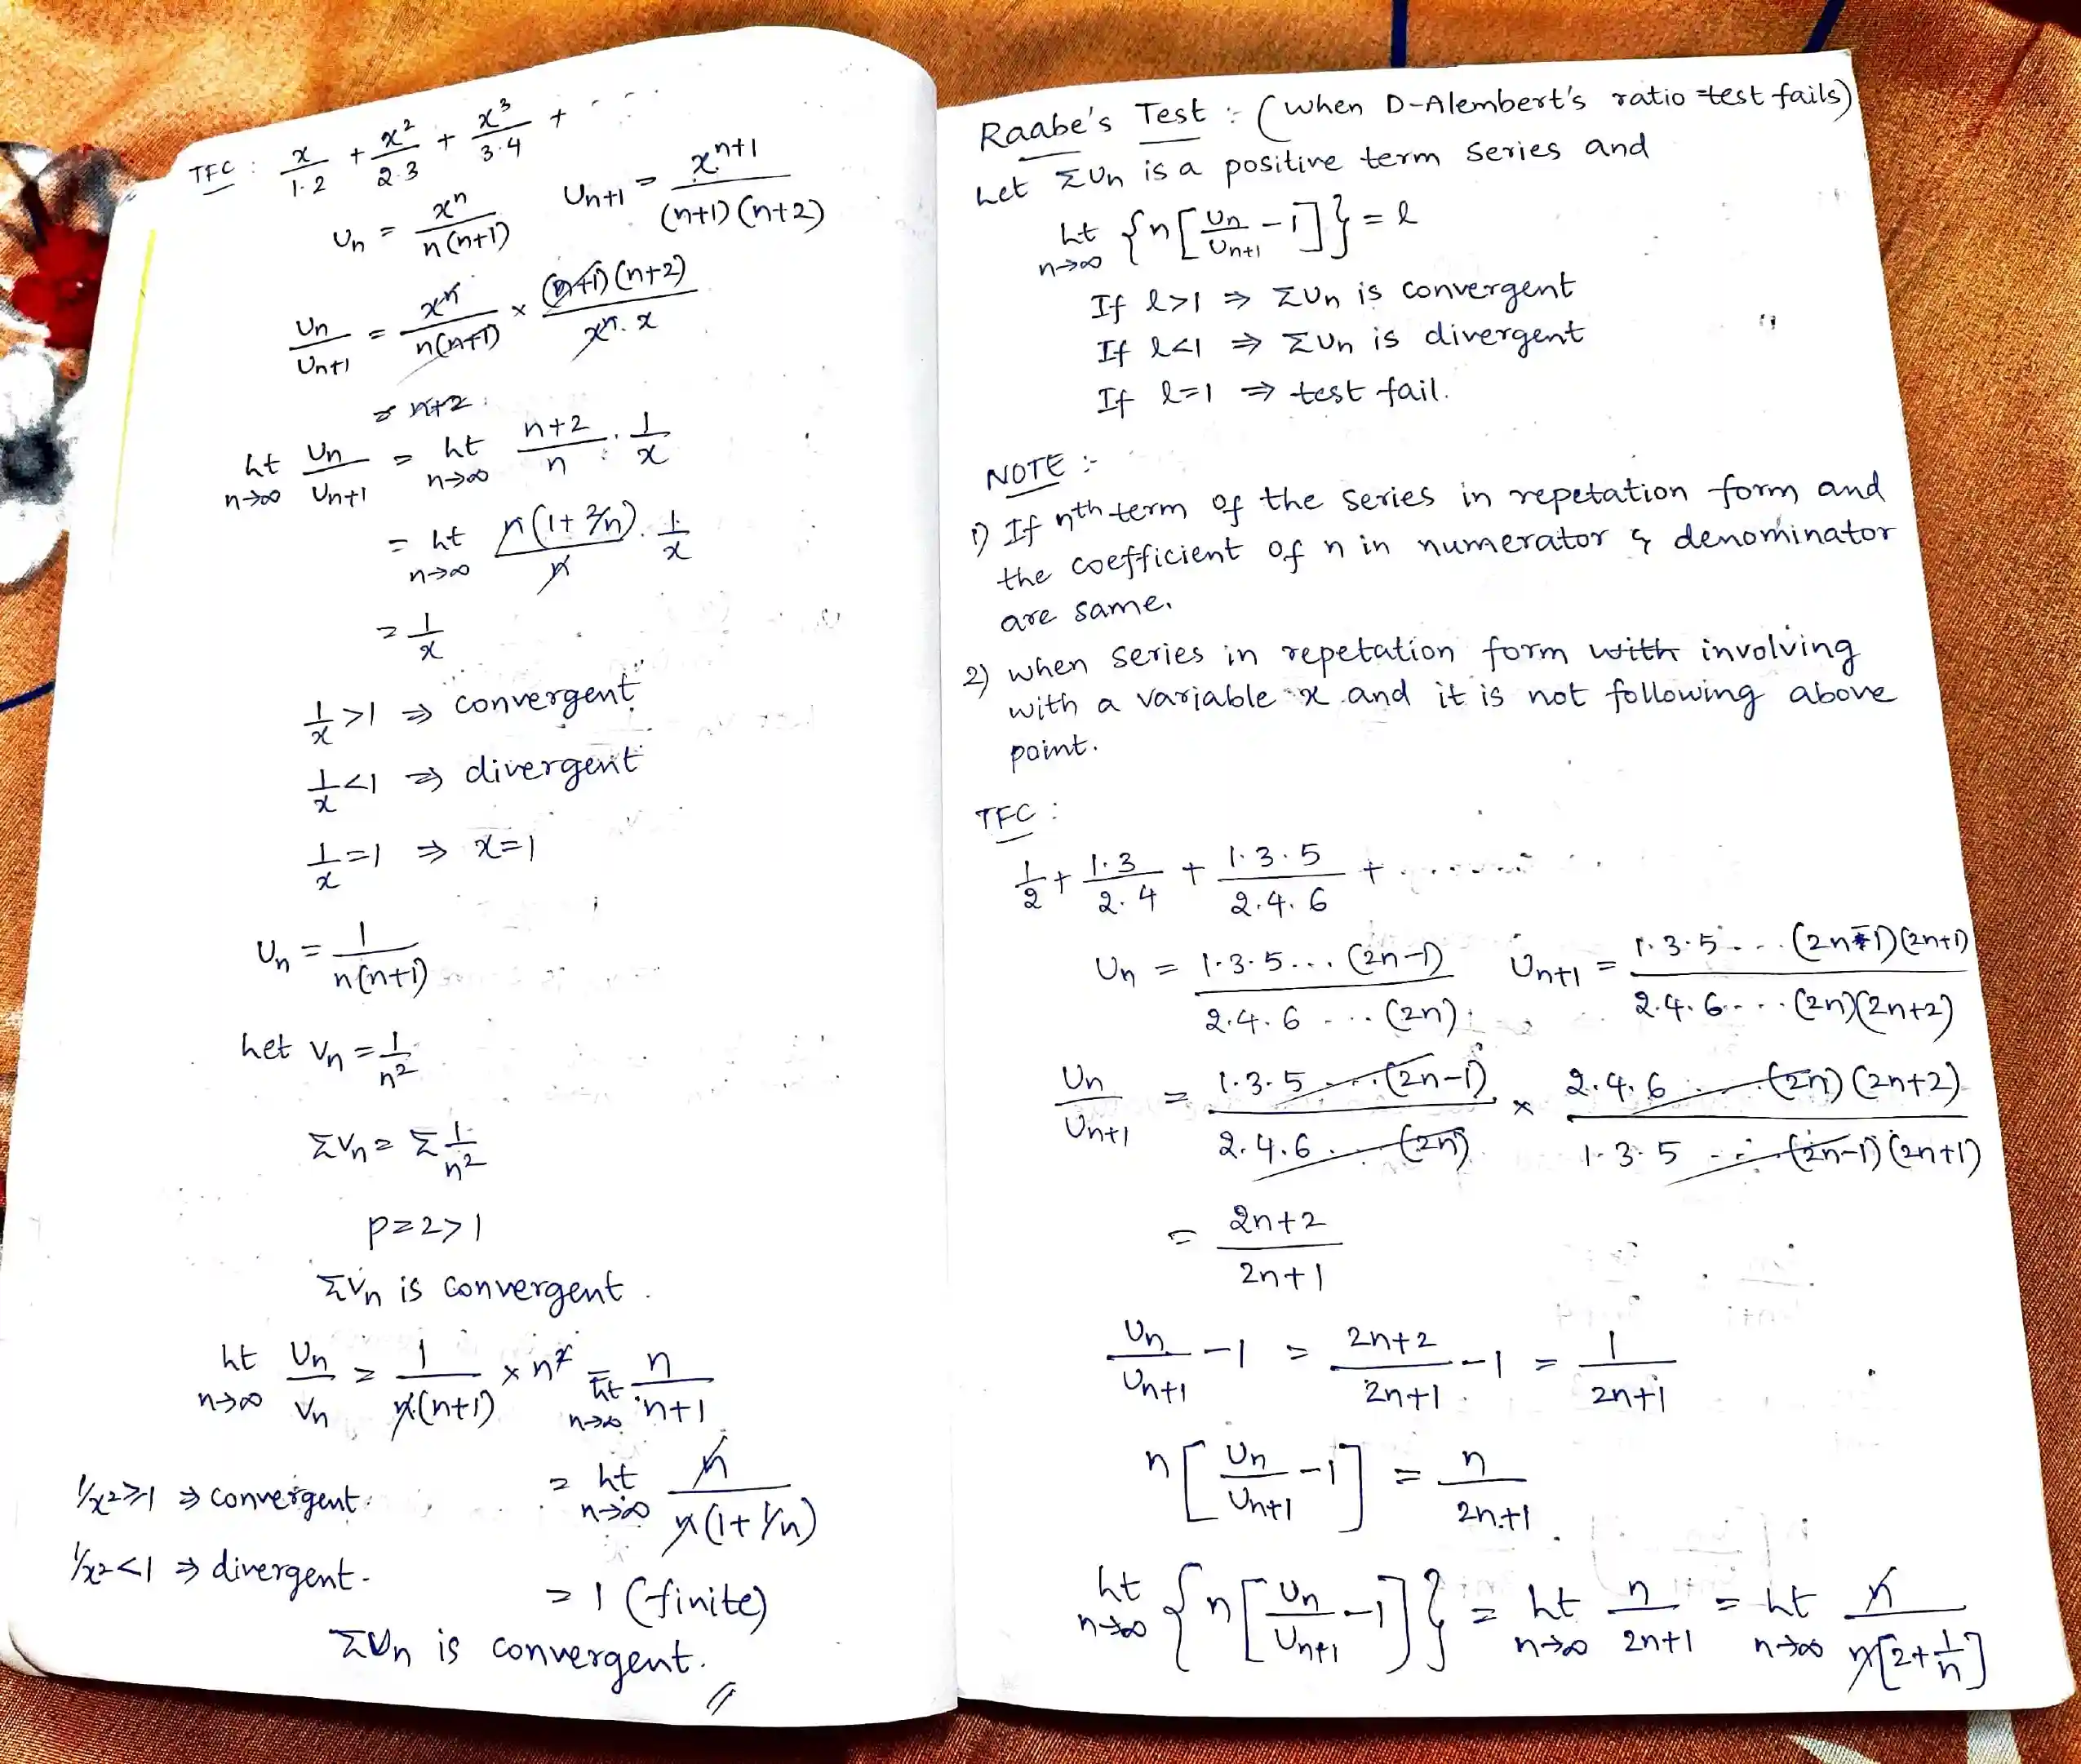 TFC : x/1·2 + x²/2·3 + x³/3·4 + - - - -
Un = xⁿ/n(n+1) Un+1 = xⁿ⁺¹/(n+1)(n+2)
Un/Un+1 = xⁿ/n(n+1) × (n+1)(n+2)/xⁿ·x
= n+2
Lt n→∞ Un/Un+1 = Lt n→∞ n+2/n · 1/x
= Lt n→∞ n(1+2/n)/n · 1/x
= 1/x
1/x >1 ⇒ convergent
1/x <1 ⇒ divergent
1/x =1 ⇒ x=1
Un = 1/n(n+1)
Let Vn = 1/n²
ΣVn = Σ 1/n²
p=2>1
ΣVn is convergent.
Lt n→∞ Un/Vn = 1/n(n+1) × n² = Lt n→∞ n/n+1
= Lt n→∞ n/n(1+1/n)
1/x²>1 ⇒ convergent.
1/x²<1 ⇒ divergent.
= 1 (finite)
ΣUn is convergent.
Raabe's Test :- (when D-Alembert's ratio test fails)
Let ΣUn is a positive term series and
Lt n→∞ {n[Un/Un+1 -1]} = l
If l>1 ⇒ ΣUn is convergent
If l<1 ⇒ ΣUn is divergent
If l=1 ⇒ test fail.
NOTE :-
1) If nth term of the series in repetation form and
the coefficient of n in numerator & denominator
are same.
2) when series in repetation form with involving
with a variable x and it is not following above
point.
TFC :
1/2 + 1·3/2·4 + 1·3·5/2·4·6 + . . . . . .
Un = 1·3·5...(2n-1)/2·4·6 ...(2n) Un+1 = 1·3·5...(2n-1)(2n+1)/2·4·6....(2n)(2n+2)
Un/Un+1 = 1·3·5 ...(2n-1)/2·4·6...(2n) × 2·4·6 ...(2n)(2n+2)/1·3·5 ...(2n-1)(2n+1)
= 2n+2/2n+1
Un/Un+1 -1 = 2n+2/2n+1 -1 = 1/2n+1
n[Un/Un+1 -1] = n/2n+1
Lt n→∞ {n[Un/Un+1 -1]} = Lt n→∞ n/2n+1 = Lt n→∞ n/n[2+1/n]